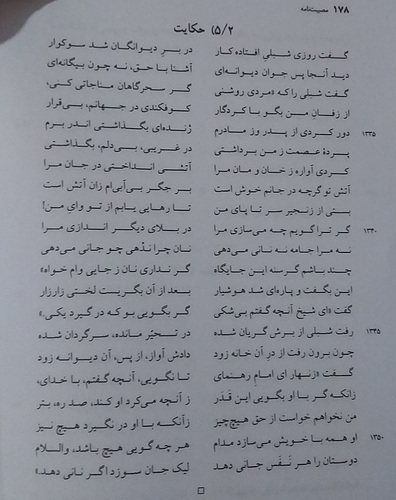 ۱۷۸ مصیبت‌نامه
۵/۲) حکایت
گفت روزی شبلی افتاده کار در بر دیوانگان شد سوکوار
دید آنجا پس جوان دیوانه‌ای آشنا با حق، نه چون بیگانه‌ای
گفت شبلی را که «مردی روشنی گر سحرگاهان مناجاتی کنی،
از زفان من بگو با کردگار کوفکندی در جهانم، بی‌قرار
۱۳۳۵ دور کردی از پدر وز مادرم ژنده‌ای بگذاشتی اندر برم
پردهٔ عصمت ز من برداشتی در غریبی، بی‌دلم، بگذاشتی
کردی آواره ز خان و مان مرا آتشی انداختی در جان مرا
آتش تو گرچه در جانم خوش است بر جگر بی‌آبی‌ام زان آتش است
بستی از زنجیر سر تا پای من تا رهایی یابم از تو وای من!
۱۳۴۰ گر ترا گویم چه می‌سازی مرا در بلای دیگر اندازی مرا
نه مرا جامه نه نانی می‌دهی نان چرا ندْهی چو جانی می‌دهی
چند باشم گرسنه این جایگاه گر نداری نان ز جایی وام خواه»
این بگفت و پاره‌ای شد هوشیار بعد از آن بگریست لختی زارزار
گفت «ای شیخ آنچه گفتم بی‌شکی گر بگویی بو که در گیرد یکی.»
۱۳۴۵ رفت شبلی از برش گریان شده در تحیّر مانده، سرگردان شده
چون برون رفت از در آن خانه زود دادش آواز، از پس، آن دیوانه زود
گفت «زنهار ای امام رهنمای تا نگویی، آنچه گفتم، با خدای،
زانکه گر با او بگویی این قَدَر ز آنچه می‌کرد او کند، صد ره، بتر
من نخواهم خواست از حق هیچ‌چیز زآنکه با او در نگیرد هیچ نیز
۱۳۵۰ او همه با خویش می‌سازد مدام هر چه گویی هیچ باشد، والسلام
دوستان را هر نَفَس جانی دهد لیک جان سوزد اگر نانی دهد»